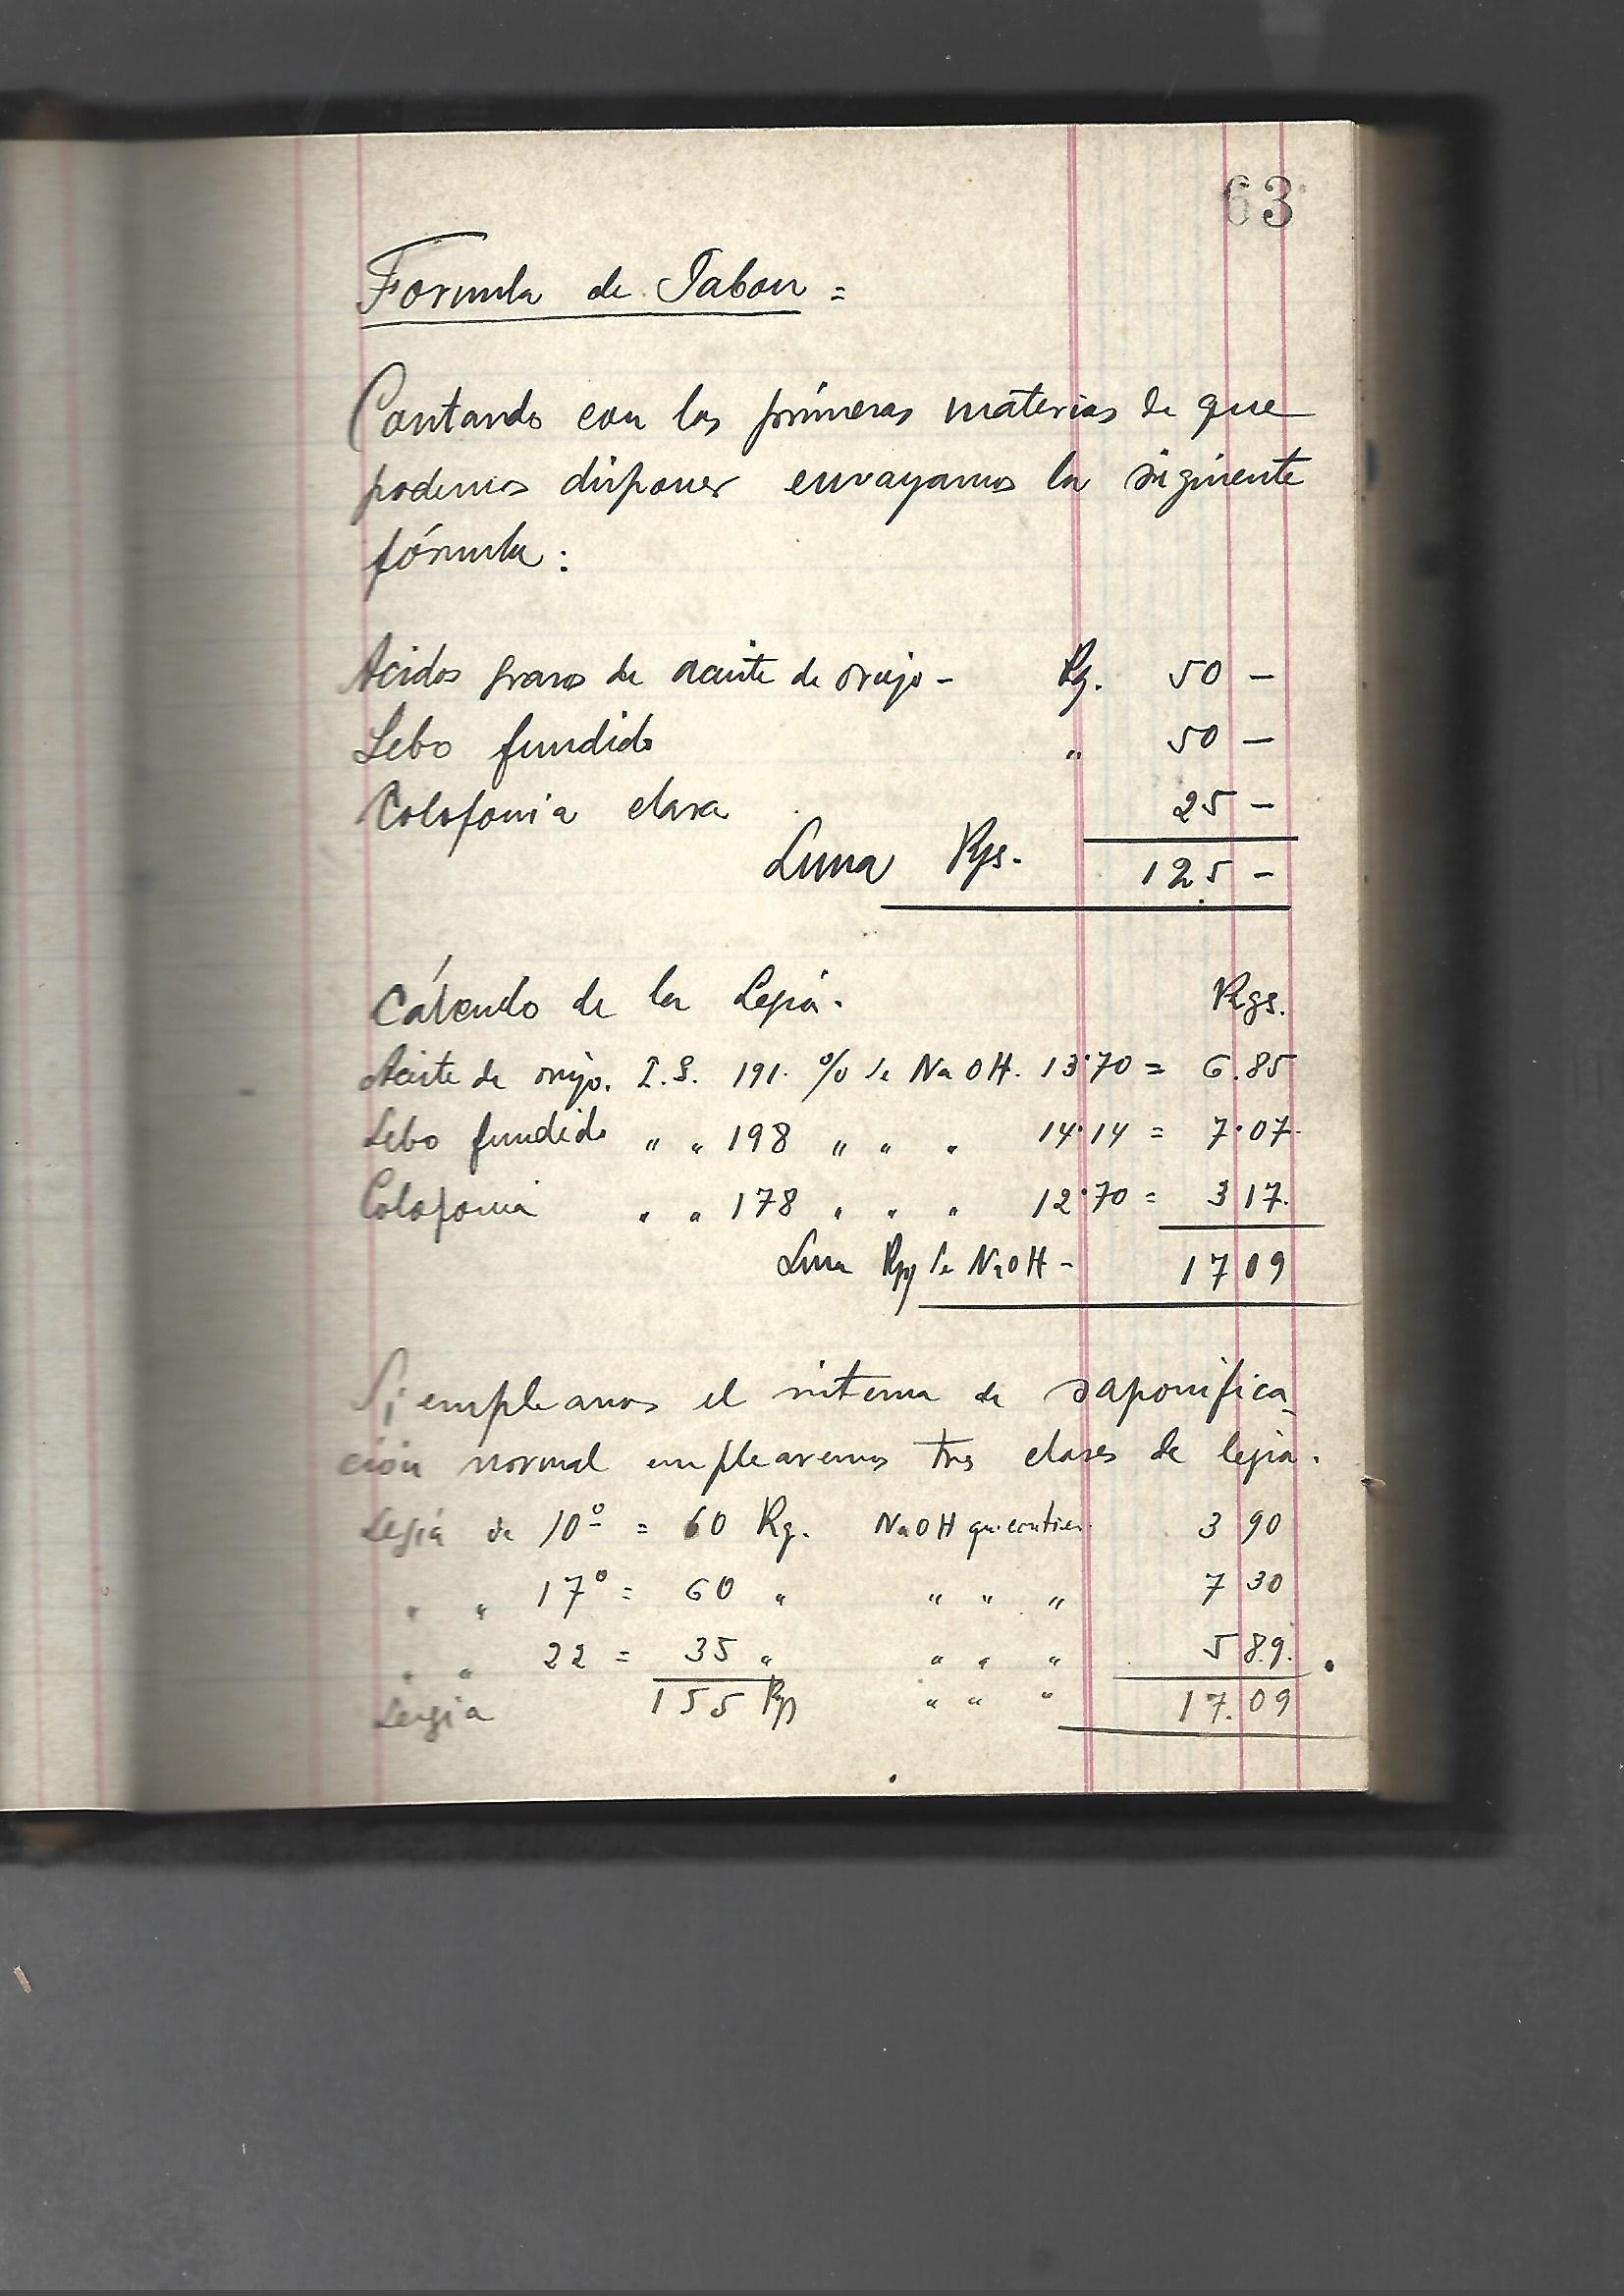 63
Formula de Jabon =
Contando con las primeras materias de que
podemos disponer ensayamos la siguiente
fórmula:
Acidos grasos de aceite de orujo - Kg. 50 -
Sebo fundido " 50 -
Colofonia clara 25 -
Suma Kgs. 125 -
Cálculo de la Lejía. Kgs.
Aceite de orujo. I.S. 191. % de NaOH. 13'70 = 6.85
Sebo fundido " " 198 " " " 14'14 = 7'07.
Colofonia " " 178 " " " 12'70 = 3 17.
Suma Kgs de NaOH - 17 09
Si empleamos el sistema de saponifica-
ción normal emplearemos tres clases de lejia.
Lejía de 10º = 60 Kg. NaOH que contien. 3 90
" " 17º = 60 " " " " 7 30
" " 22 = 35 " " " " 5 89.
Legia 155 Kgs " " " 17.09